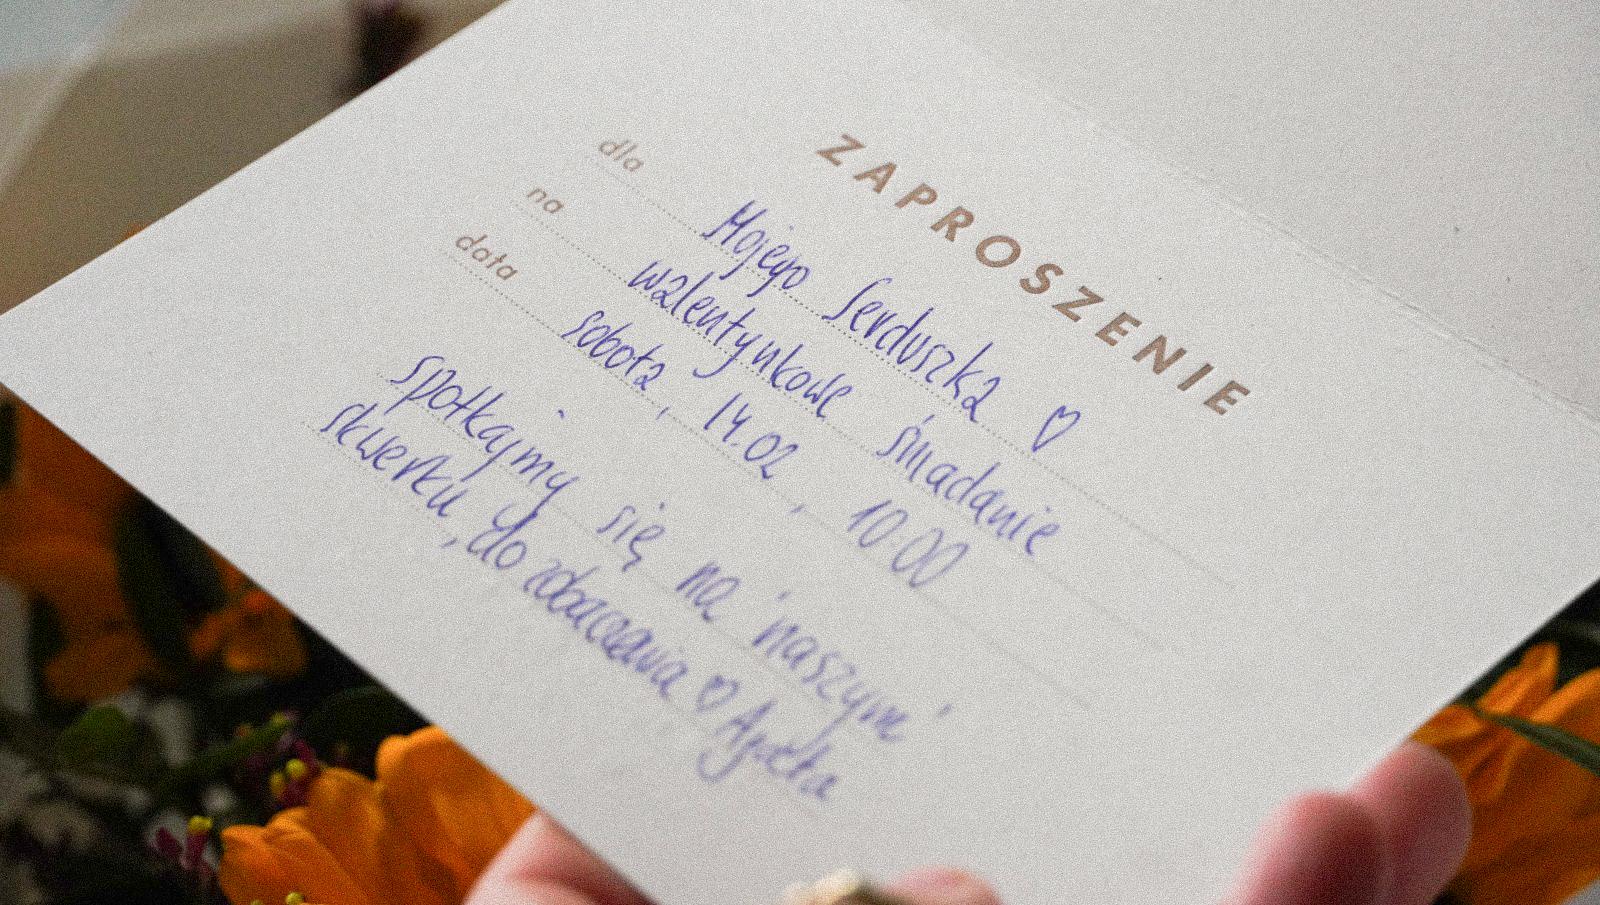 ZAPROSZENIE
dla Mojego Serduszka ♡
na walentynkowe śniadanie
data sobota, 14.02, 10:00
spotkajmy się na "naszym"
skwerku, do zobaczenia ♡ Agatka